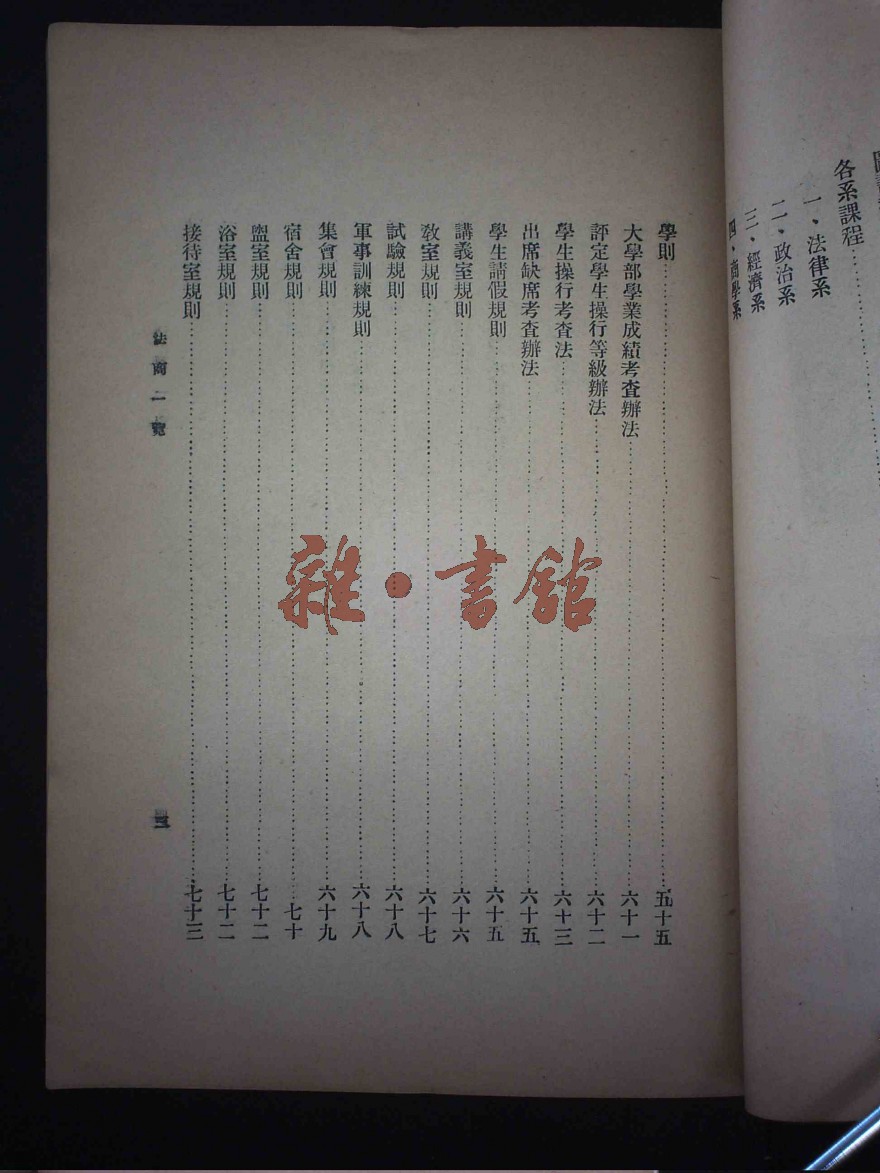 各系課程
一、法律系
二、政治系
三、經濟系
四、商學系
學則五十五
大學部學業成績考查辦法六十一
評定學生操行等級辦法六十二
學生操行考查法六十三
出席缺席考查辦法六十五
學生請假規則六十五
講義室規則六十六
教室規則六十七
試驗規則六十八
軍事訓練規則六十八
集會規則六十九
宿舍規則七十
盥室規則七十二
浴室規則七十二
接待室規則七十三
法商一覽
三
雜·書館